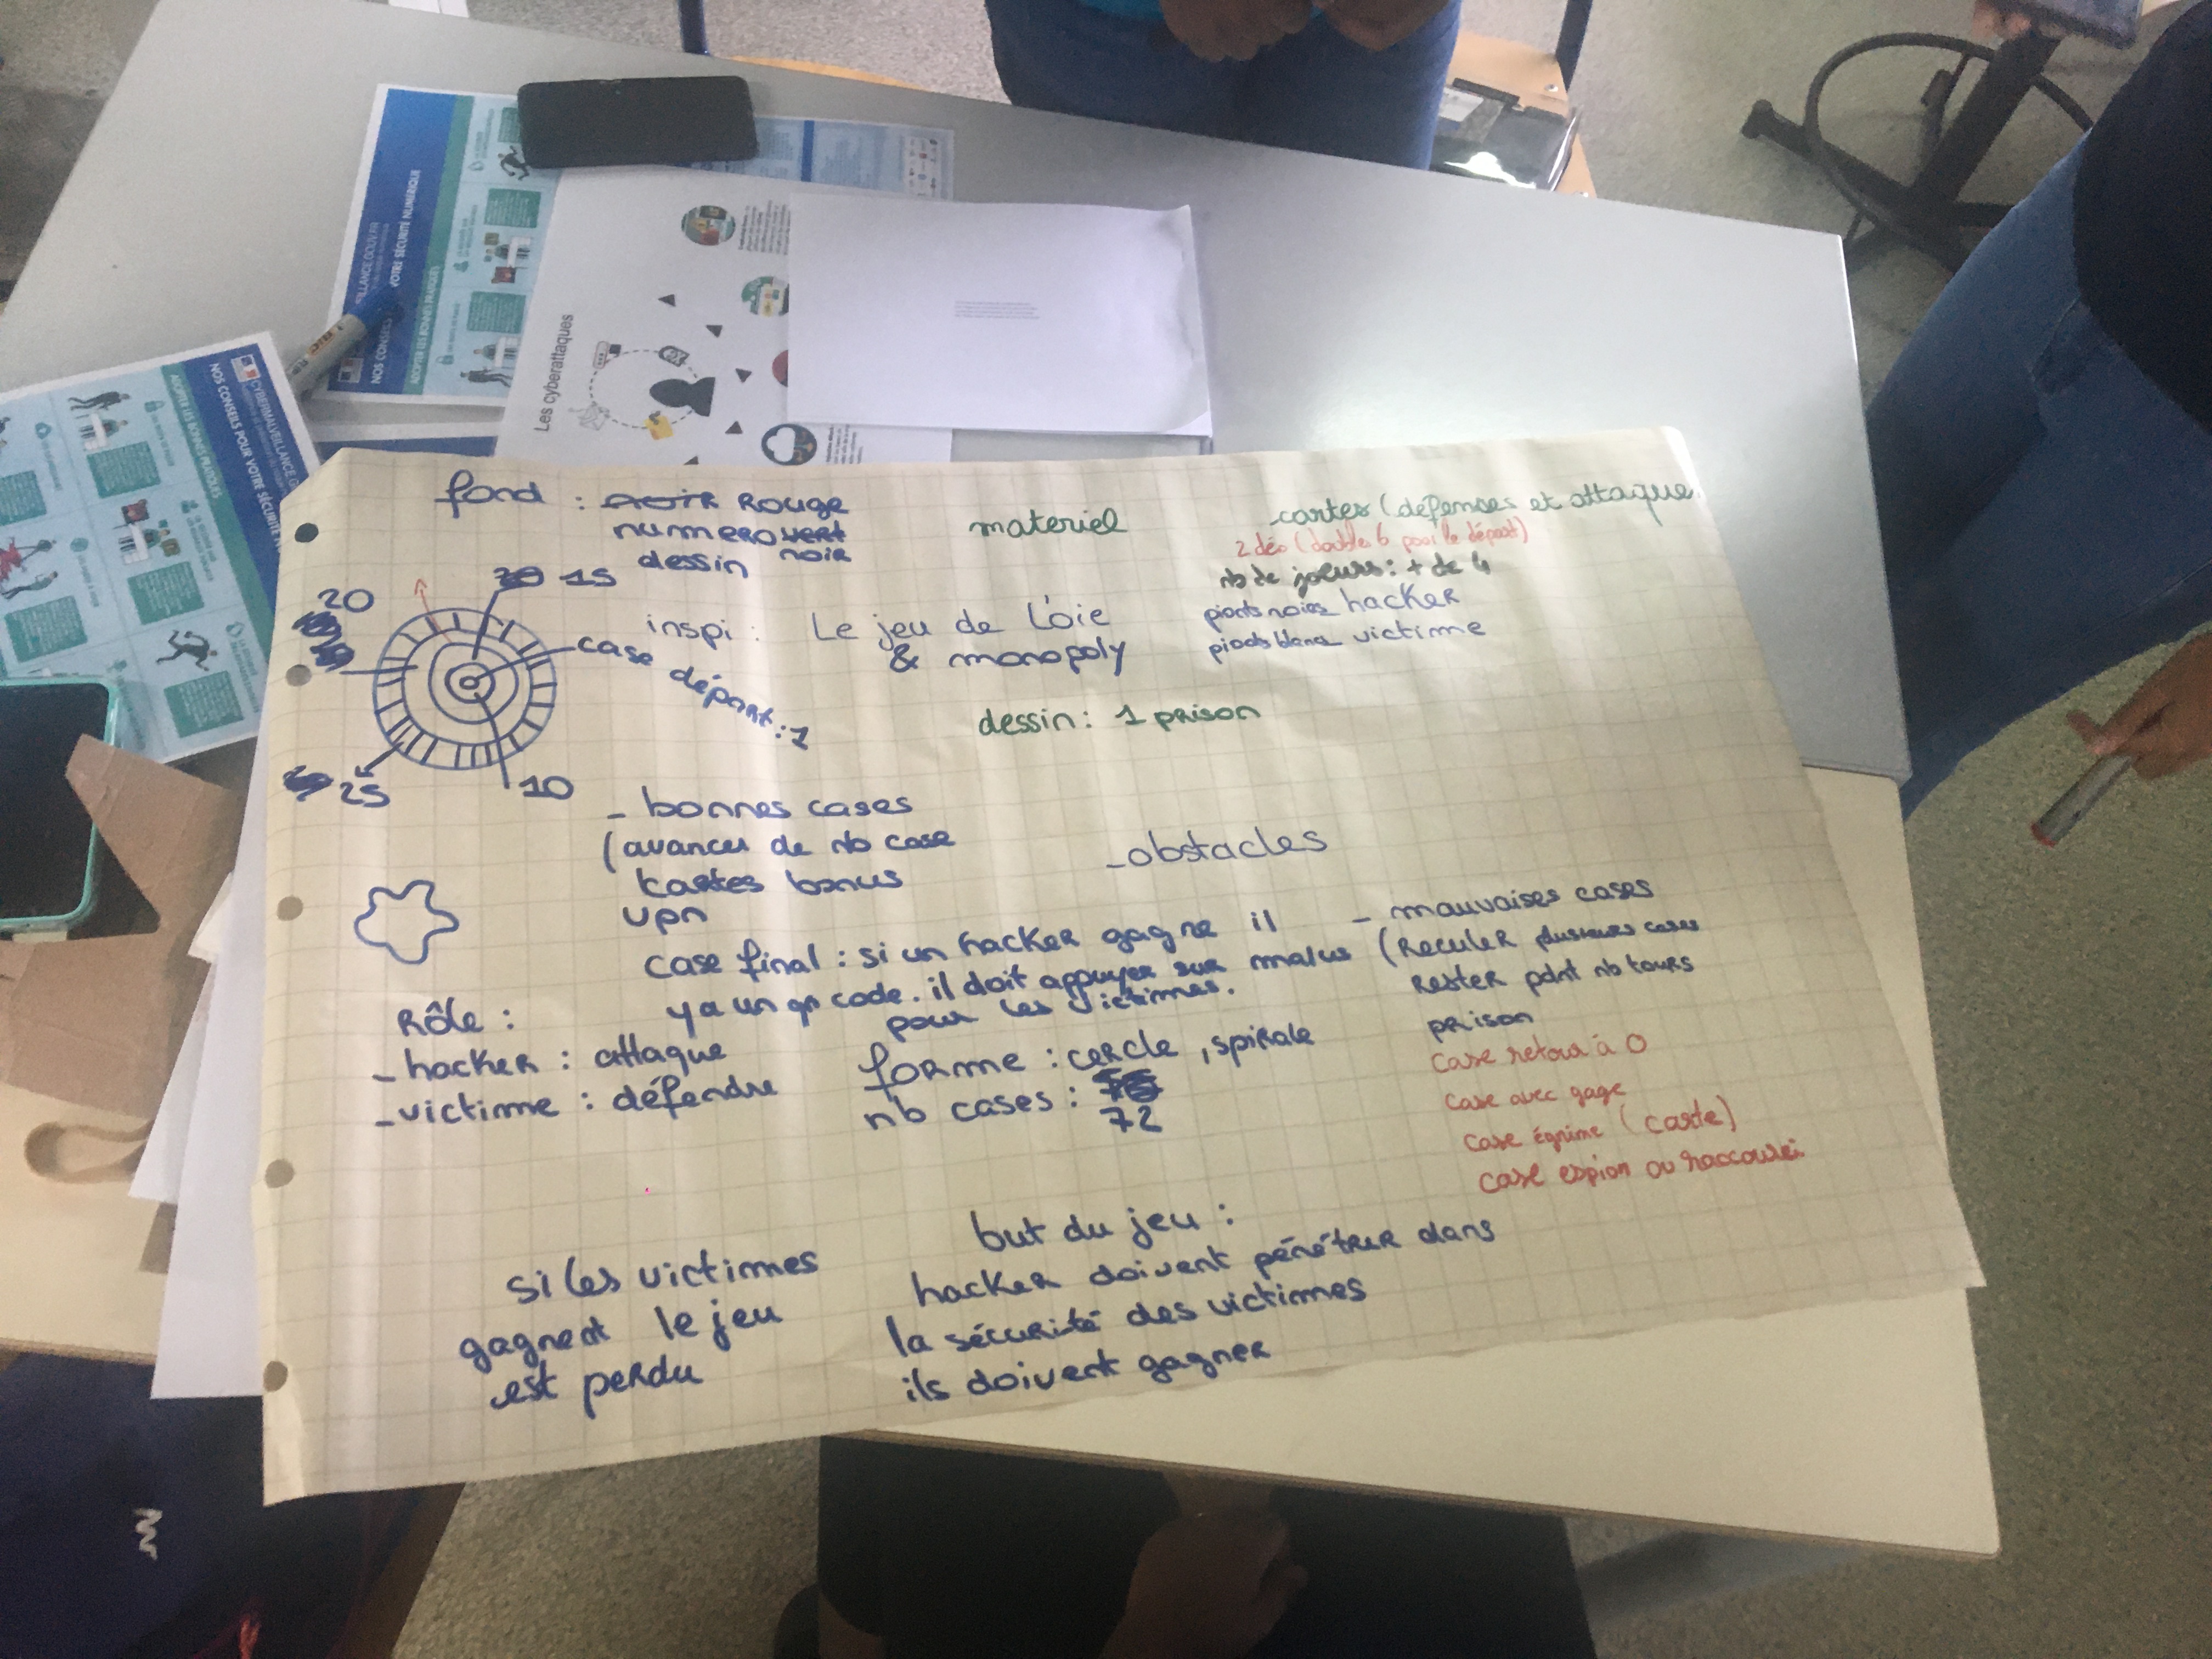 CYBERMALVEILLANCE.G
NOS CONSEILS POUR VOTRE SÉCURITÉ
ADOPTER LES BONNES PRATIQUES
ILLANCE.GOUV.FR
NOS CONSE
VOTRE SÉCURITÉ NUMÉRIQUE
ADOPTER LES BONNES PRATIQUES
Les cyberattaques
fond : noir Rouge
numero vert
dessin noir
materiel
cartes (défenses et attaque
2 dés (double 6 pour le départ)
nb de joeurs : + de 4
pionts noirs hacker
pionts blancs victime
15
20
case départ : 1
25
10
inspi : Le jeu de l'oie
& monopoly
dessin : 1 prison
- bonnes cases
(avancer de nb case
cartes bonus
vpn
case final : si un hacker gagne il
y a un qr code. il doit appuyer sur malus
pour les victimes.
- obstacles
- mauvaises cases
(Reculer plusieurs cases
rester pdnt nb tours
prison
case retour à 0
case avec gage
case égnime (carte)
case espion ou raccourci
Rôle :
- hacker : attaque
- victime : défendre
forme : cercle, spirale
nb cases :
72
si les victimes
gagnent le jeu
est perdu
but du jeu :
hacker doivent pénétrer dans
la sécurité des victimes
ils doivent gagner